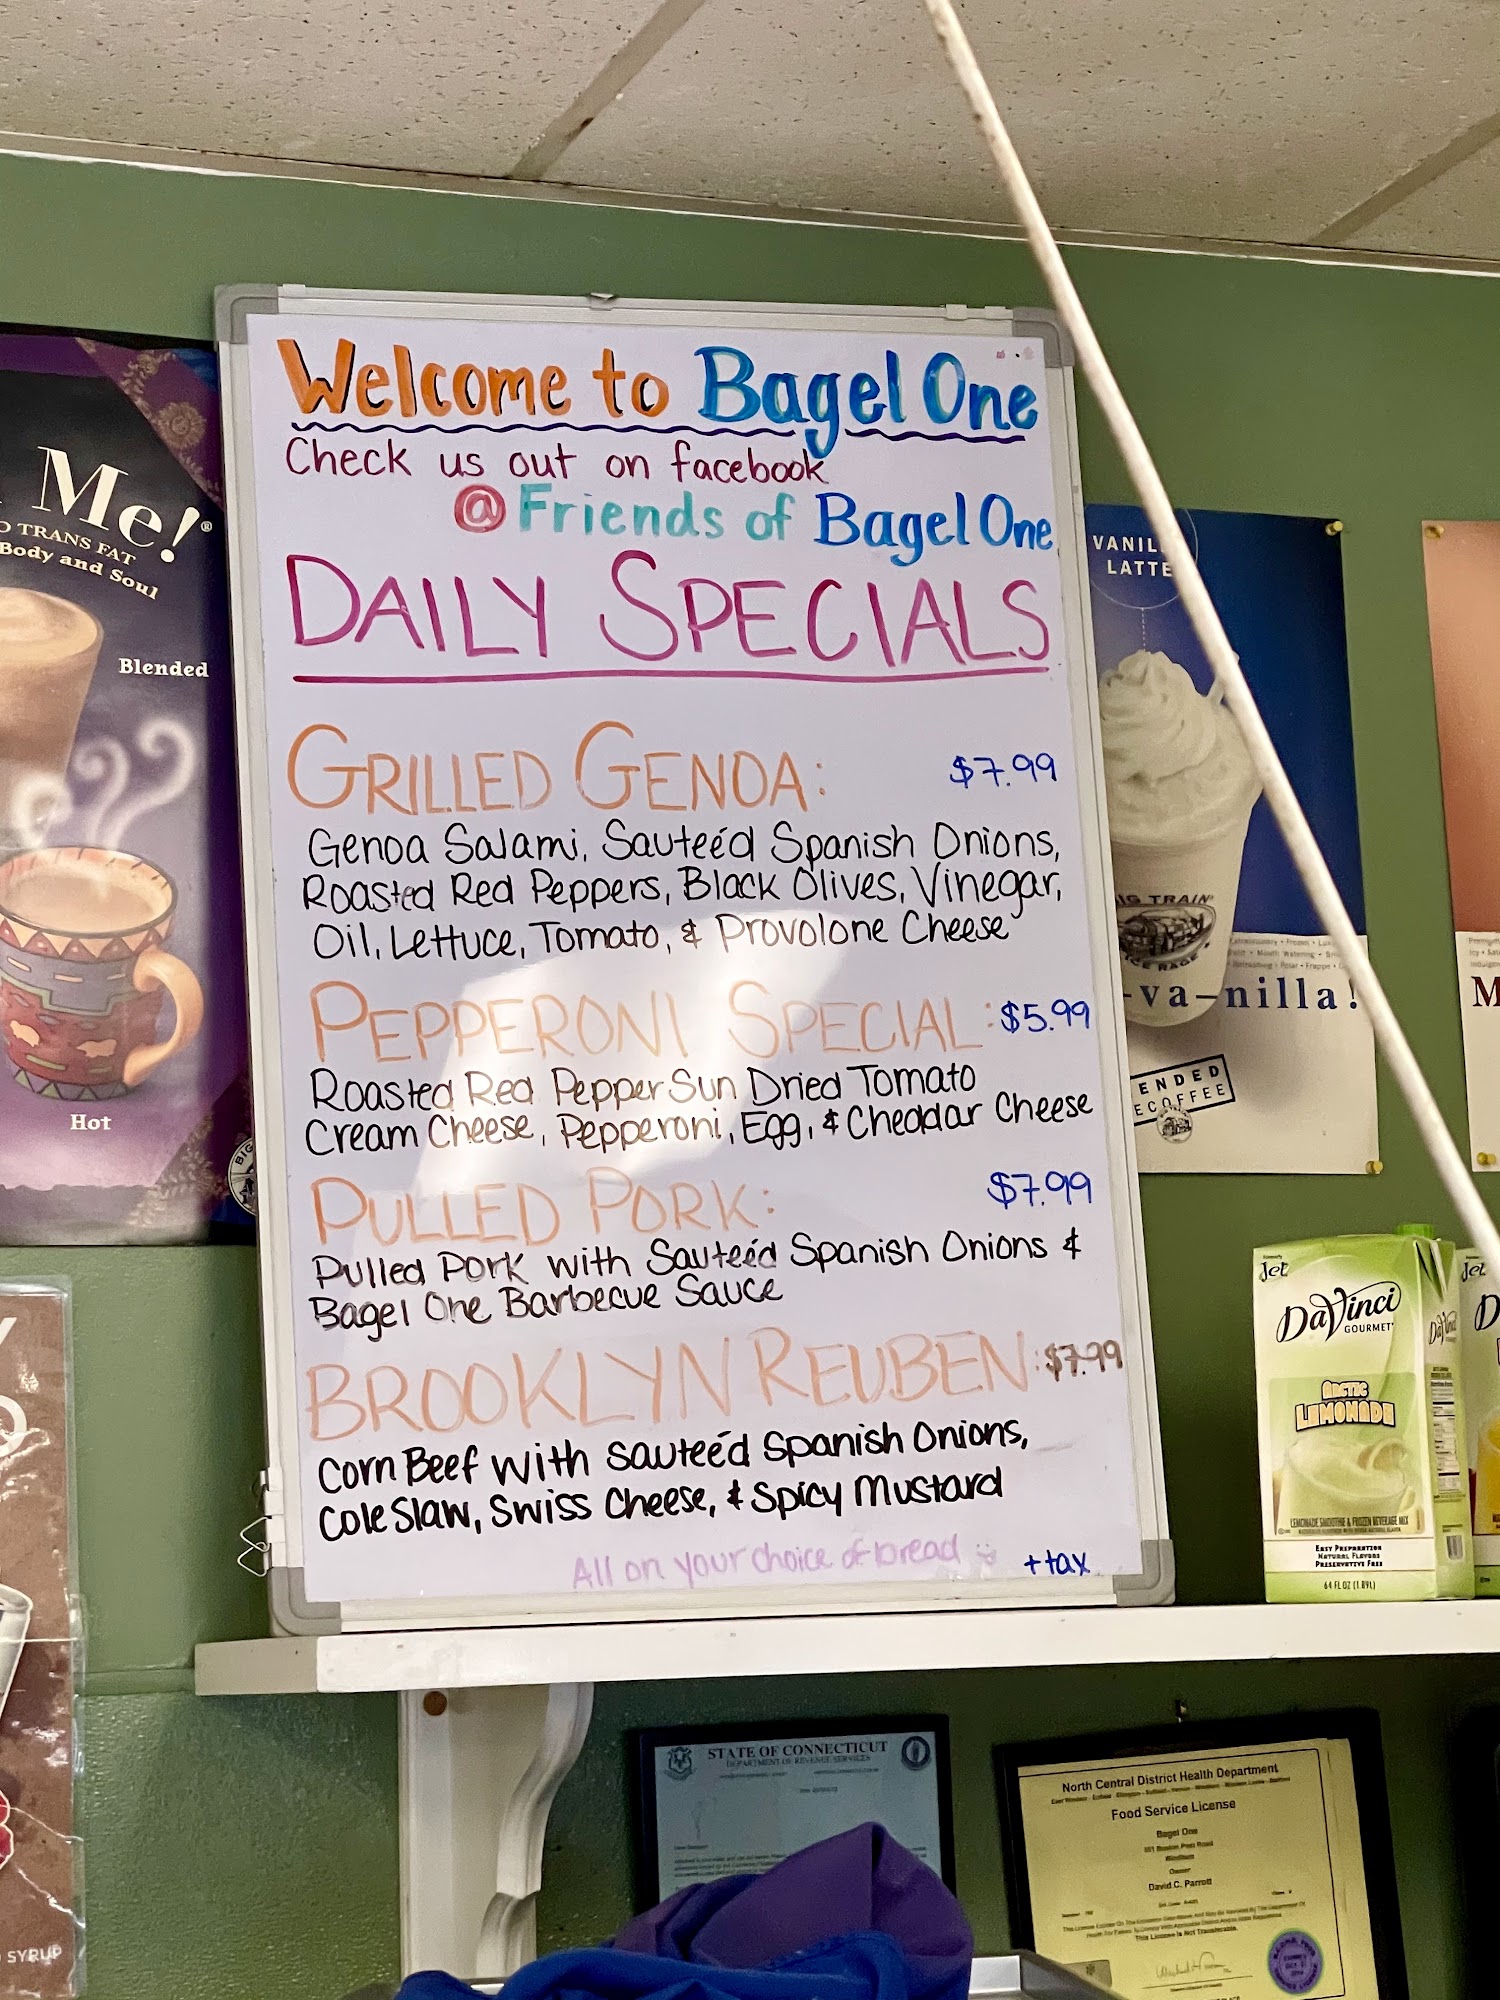 Welcome to Bagel One
Check us out on facebook
@ Friends of Bagel One
DAILY SPECIALS
GRILLED GENOA: $7.99
Genoa Salami, Sauteéd Spanish Onions,
Roasted Red Peppers, Black Olives, Vinegar,
Oil, Lettuce, Tomato, & Provolone Cheese
PEPPERONI SPECIAL: $5.99
Roasted Red Pepper Sun Dried Tomato
Cream Cheese, Pepperoni, Egg, & Cheddar Cheese
PULLED PORK: $7.99
Pulled Pork with Sauteéd Spanish Onions &
Bagel One Barbecue Sauce
BROOKLYN REUBEN: $7.99
Corn Beef with Sauteéd Spanish Onions,
Cole Slaw, Swiss Cheese, & Spicy Mustard
All on your choice of bread + tax
Me!®
O TRANS FAT
Body and Soul
Blended
Hot
BIG
SYRUP
VANIL
LATTE
IG TRAIN
ICE RAGE
-va-nilla!
ENDED
ECOFFEE
M
Jet
DaVinci
GOURMET
ARCTIC
LEMONADE
LEMONADE SMOOTHIE & FROZEN BEVERAGE MIX
EASY PREPARATION
NATURAL FLAVORS
PRESERVATIVE FREE
64 FL OZ (1.89L)
Jet
STATE OF CONNECTICUT
DEPARTMENT OF REVENUE SERVICES
North Central District Health Department
Food Service License
Bagel One
Windham
Owner
David C. Parrott
This License is Not Transferable.